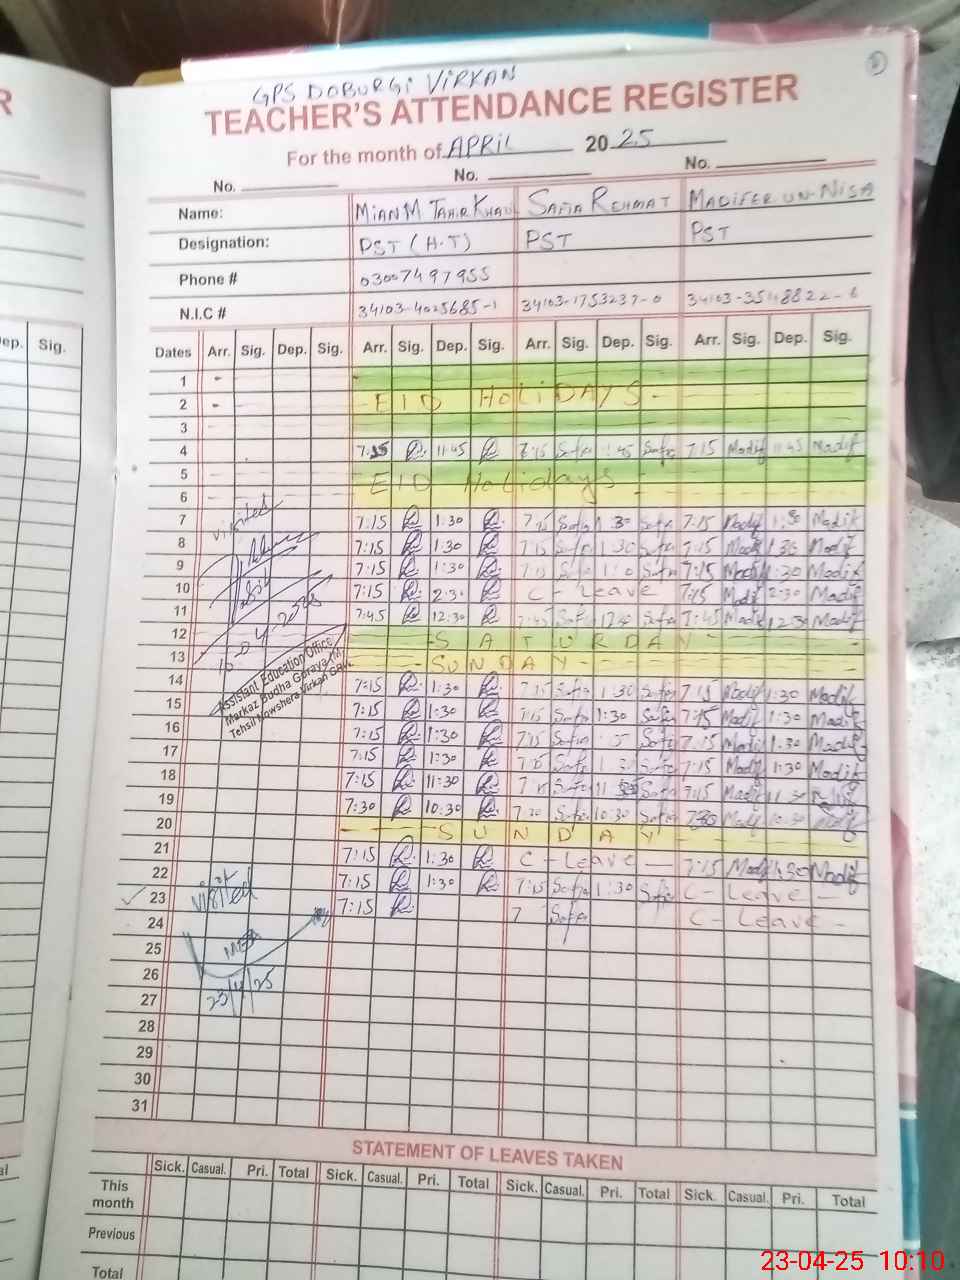 GPS DOBURGI VIRKAN
TEACHER'S ATTENDANCE REGISTER
For the month of APRIL 2025
No. No. No.
Name: MIAN M TAHIR KHAN SAFIA REHMAT MADIFER-UN-NISA
Designation: PST (H.T) PST PST
Phone # 03007497955
N.I.C # 34103-4025685-1 34103-1753237-0
Dates Arr. Sig. Dep. Sig. Arr. Sig. Dep. Sig. Arr. Sig. Dep. Sig. Arr. Sig. Dep. Sig.
1
2 EID HOLIDAYS
3
4 7:15 11:45 7:15 Safia :45 Safia 7:15 Madif 11:45 Madif
5 EID Holidays
6
7 7:15 1:30 7:15 Safia 1:30 Safia 7:15 Madif 1:30 Madif
8 7:15 1:30 7:15 Safia 1:30 Safia 7:15 Madif 1:30 Madif
9 7:15 1:30 7:15 Safia Safia 7:15 Madif 1:30 Madif
10 7:15 2:30 C-Leave 7:15 Madif 2:30 Madif
11 7:45 12:30 7:45 Safia Safia 7:45 Madif 12:30 Madif
12 SATURDAY
13 SUNDAY
14 7:15 1:30 7:15 Safia 1:30 Safia 7:15 Madif 1:30 Madif
15 7:15 1:30 7:15 Safia 1:30 Safia 7:15 Madif 1:30 Madif
16 7:15 1:30 7:15 Safia Safia 7:15 Madif 1:30 Madif
17 7:15 1:30 7:15 Safia 1:30 Safia 7:15 Madif 1:30 Madif
18 7:15 11:30 7:15 Safia Safia 7:15 Madif 11:30
19 7:30 10:30 7:30 Safia 10:30 Safia 7:30 Madif 10:30 Madif
20 SUNDAY
21 7:15 1:30 C-Leave 7:15 Madif 1:30 Madif
22 7:15 1:30 7:15 Safia 1:30 Safia C-Leave
23 7:15 7 Safia C-Leave
24
25
26
27
28
29
30
31
visited
10-04-2025
Assistant Education Officer
Markaz Budha Goraya (M)
Tehsil Nowshera Virkan GRW.
visited
MEA
23/4/25
STATEMENT OF LEAVES TAKEN
Sick. Casual. Pri. Total Sick. Casual. Pri. Total Sick. Casual. Pri. Total Sick. Casual. Pri. Total
This month
Previous
Total
R
ep. Sig.
al
23-04-25 10:10